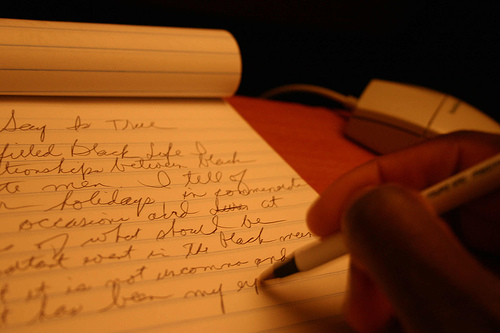 Say is True
filled Black Life Black
tionships between black
te men I tell of
holidays in
occasion and at
of what should be
event in the black men
it is not uncommon and
t has been my